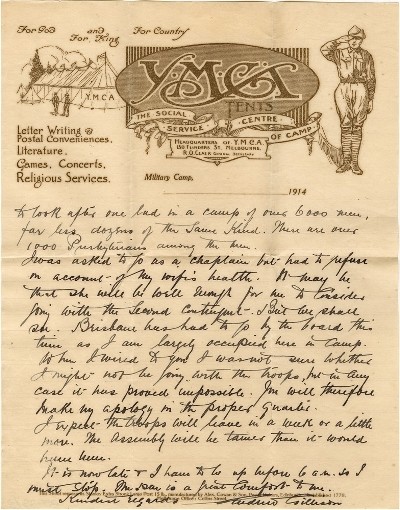 For God and For King For Country
Y.M.C.A.
TENTS
YMCA
THE SOCIAL SERVICE CENTRE OF CAMP.
HEADQUARTERS OF Y.M.C.A.
FLINDERS ST. MELBOURNE.
Letter Writing &
Postal Conveniences,
Literature,
Games, Concerts,
Religious Services.
Military Camp,
1914
to look after one lad in a camp of over 6000 men,
far less dozens of the same kind. There are over
1000 Presbyterians among the men.
I was asked to go as a chaplain but had to refuse
on account of my wife's health. It may be
that she will be well enough for me to consider
going with the Second Contingent. But we shall
see. Brisbane has had to go by the board this
time as I am largely occupied here in camp.
When I wired to you I was not sure whether
I might not be going with the troops, but in any
case it has proved impossible. You will therefore
make my apology in the proper quarter.
I expect the troops will leave in a week or a little
more. The Assembly will be tamer than it would
have been.
It is now late & I have to be up before 6 a.m. so I
must stop. is a great comfort to me.
Kindest regards